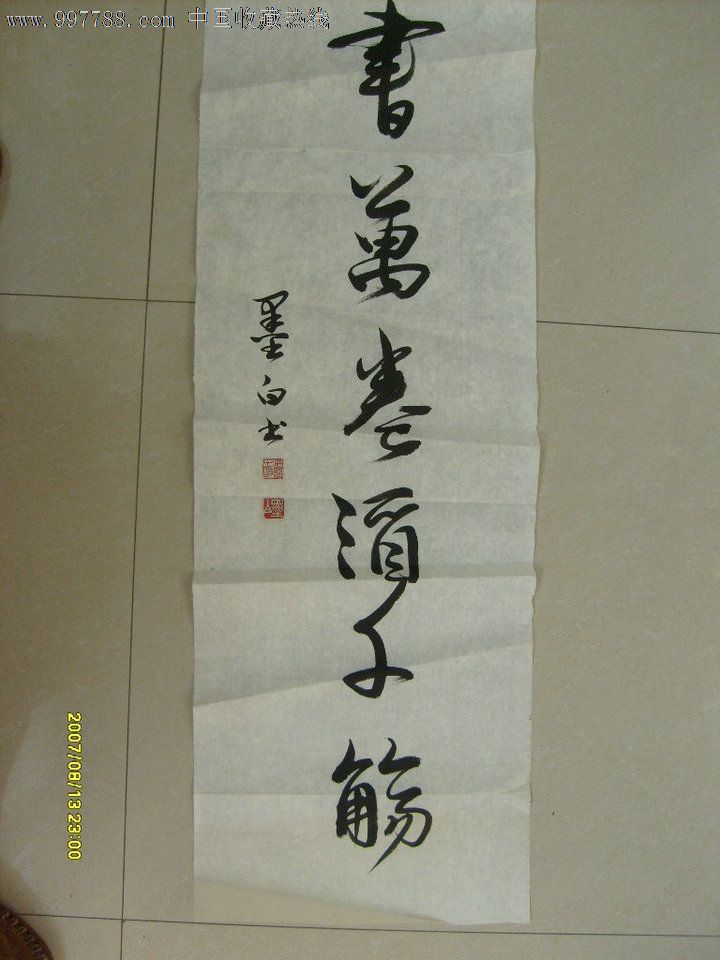 www.997788.com 中国收藏热线
書萬卷酒千觴
墨白书
2007/08/13 23:00